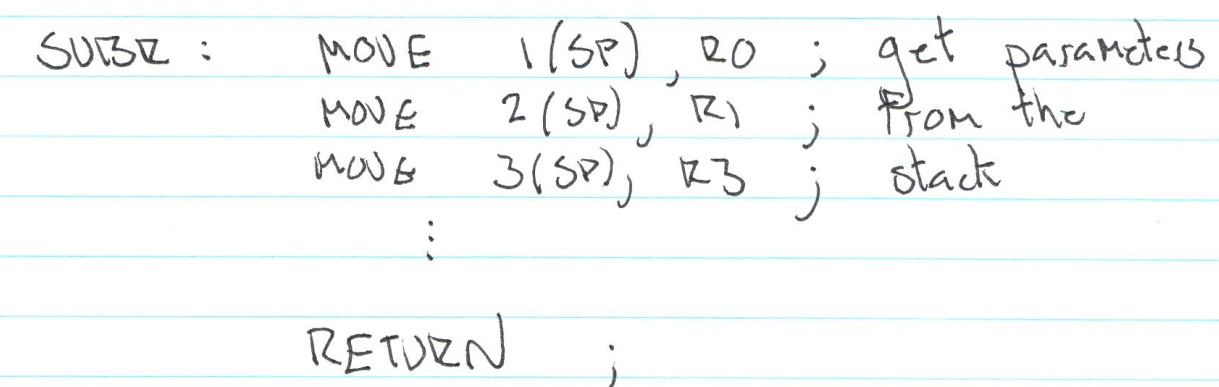 SUBR : MOVE 1(SP), R0 ; get parameters
MOVE 2(SP), R1 ; From the
MOVE 3(SP), R3 ; stack
⋮
RETURN ;